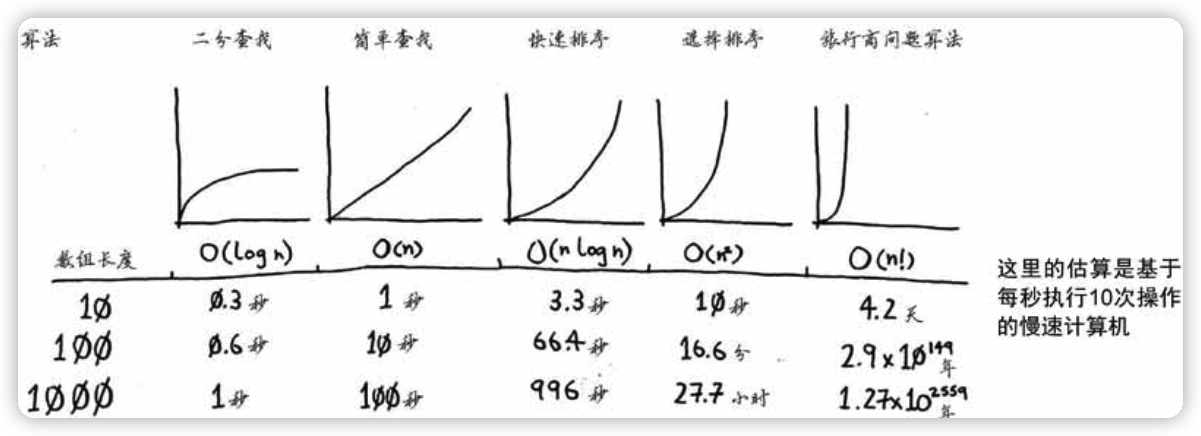 算法 二分查找 简单查找 快速排序 选择排序 旅行商问题算法
数组长度 O(log n) O(n) O(n log n) O(n²) O(n!)
10 0.3 秒 1 秒 3.3 秒 10 秒 4.2 天
100 0.6 秒 10 秒 66.4 秒 16.6 分 2.9 x 10¹⁴⁹ 年
1000 1 秒 100 秒 996 秒 27.7 小时 1.27x10²⁵⁵⁹ 年
这里的估算是基于
每秒执行10次操作
的慢速计算机